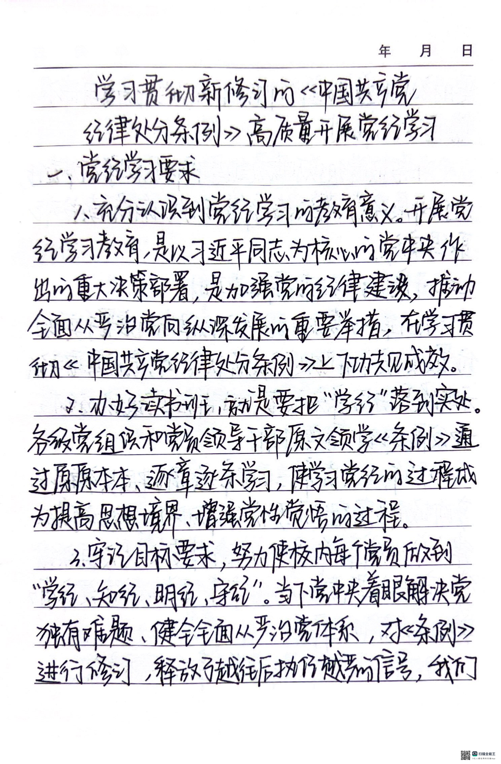 年 月 日
学习贯彻新修订的《中国共产党
纪律处分条例》高质量开展党纪学习
一、党纪学习要求
1、充分认识到党纪学习的教育意义。开展党
纪学习教育，是以习近平同志为核心的党中央作
出的重大决策部署，是加强党的纪律建设，推动
全面从严治党向纵深发展的重要举措，在学习贯
彻《中国共产党纪律处分条例》上下功夫见成效。
2、办好读书班，就是要把“学纪”落到实处。
各级党组织和党员领导干部原文领学《条例》通
过原原本本、逐章逐条学习，使学习党纪的过程成
为提高思想境界、增强党性觉悟的过程。
3、牢记目标要求，努力使校内每个党员做到
“学纪、知纪、明纪、守纪”。当下党中央着眼解决党
独有难题、健全全面从严治党体系，对《条例》
进行修订，释放了越往后执行越严的信号，我们